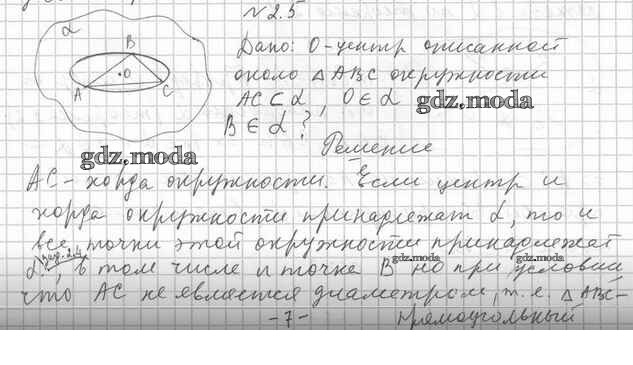 №2.5
α
B
O
A
C
Дано: О-центр описанной
около △ABC окружности
AC⊂α, O∈α
gdz.moda
B∈α?
Решение
gdz.moda
AC-хорда окружности. Если центр и
хорда окружности принадлежат α, то и
все точки этой окружности принадлежат
α, в том числе и точка B но при условии
зад. 2.4
gdz.moda
gdz.moda
что AC не является диаметром, т.е. △ABC-
-7- прямоугольный